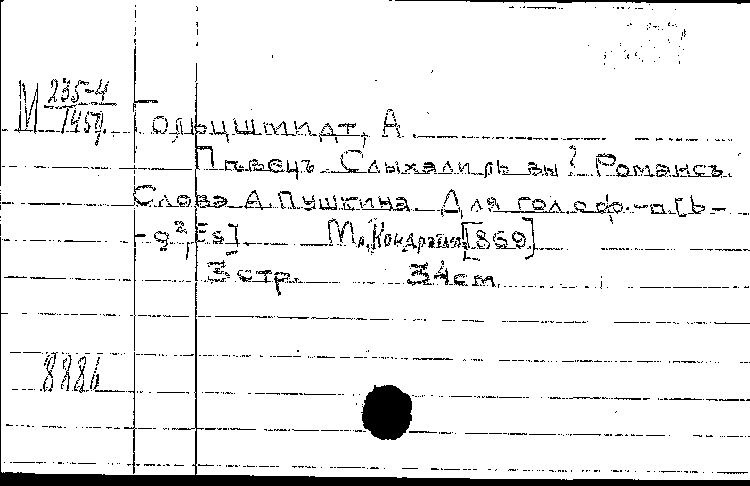 М 235-4
145
Гольцшмидт, А.
Пѣвецъ. Слыхали ль вы? Романсъ.
Слова А. Пушкина. Для гол. с ф.-п. [b-
-g², Es]. М., [869]
3 стр. 34 см.
8886